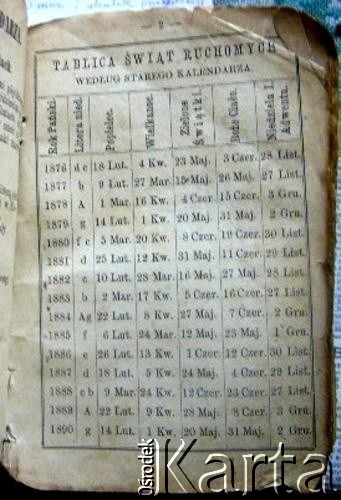 — 2 —
TABLICA ŚWIĄT RUCHOMYCH
WEDŁUG STAREGO KALENDARZA.
Rok Pański. Litera nied. Popielec. Wielkanoc. Zielone Świątki. Boże Ciało. Niedziela I Adwentu.
1876 d c 18 Lut. 4 Kw. 23 Maj. 3 Czer. 28 List.
1877 b 9 Lut. 27 Mar. 15 Maj. 26 Maj. 27 List.
1878 A 1 Mar 16 Kw. 4 Czer 15 Czer. 3 Gru.
1879 g 14 Lut. 1 Kw. 20 Maj. 31 Maj. 2 Gru.
1880 f e 5 Mar. 20 Kw. 8 Czer. 19 Czer. 30 List.
1881 d 25 Lut. 12 Kw. 31 Maj. 11 Czer. 29 List.
1882 c 10 Lut. 28 Mar. 16 Maj. 27 Maj. 28 List.
1883 b 2 Mar. 17 Kw. 5 Czer. 16 Czer. 27 List.
1884 Ag 22 Lut. 8 Kw. 27 Maj. 7 Czer. 2 Gru.
1885 f 6 Lut. 24 Mar. 12 Maj. 23 Maj. 1 Gru.
1886 e 26 Lut. 13 Kw. 1 Czer 12 Czer. 30 List.
1887 d 18 Lut. 5 Kw. 24 Maj. 4 Czer. 29 List.
1888 c b 9 Mar. 24 Kw. 12 Czer. 23 Czer. 27 List.
1889 A 22 Lut. 9 Kw. 28 Maj. 8 Czer. 3 Gru.
1890 g 14 Lut. 1 Kw. 20 Maj. 31 Maj. 2 Gru.
Ośrodek
Karta